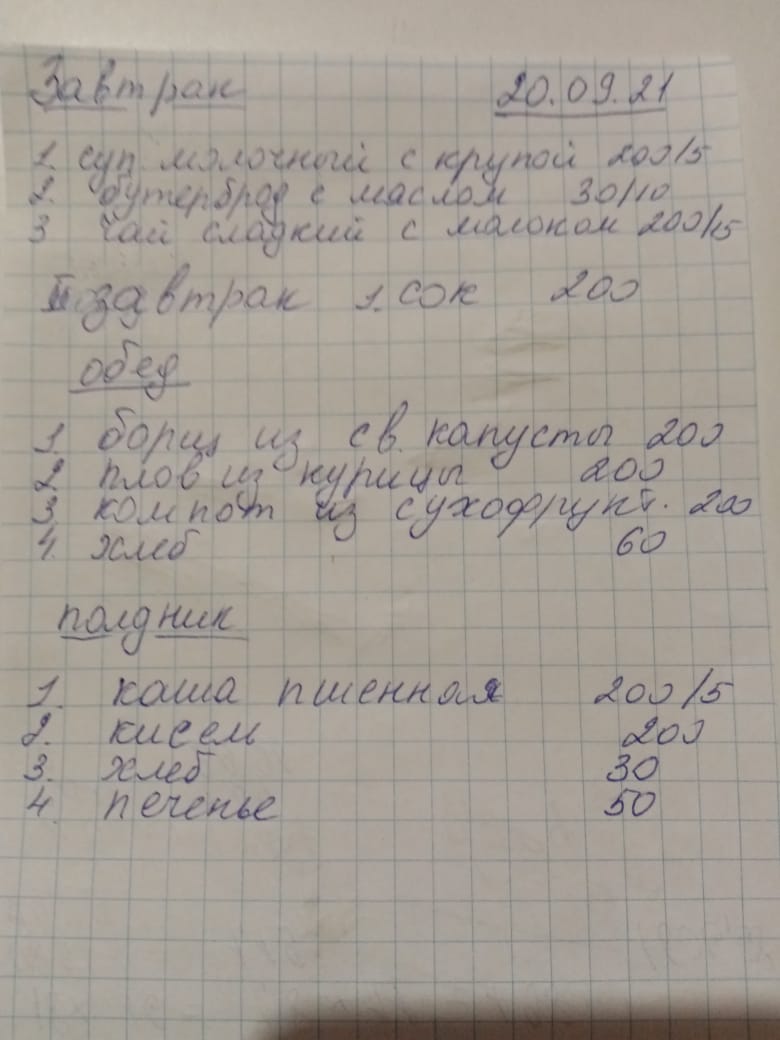 Завтрак 20.09.21
1. суп молочный с крупой 200/5
2. бутерброд с маслом 30/10
3 чай сладкий с молоком 200/15
II завтрак 1. сок 200
обед
1. борщ из св. капусты 200
2. плов из курицы 200
3. компот из сухофрукт. 200
4. хлеб 60
полдник
1. каша пшенная 200/5
2. кисель 200
3. хлеб 30
4. печенье 50